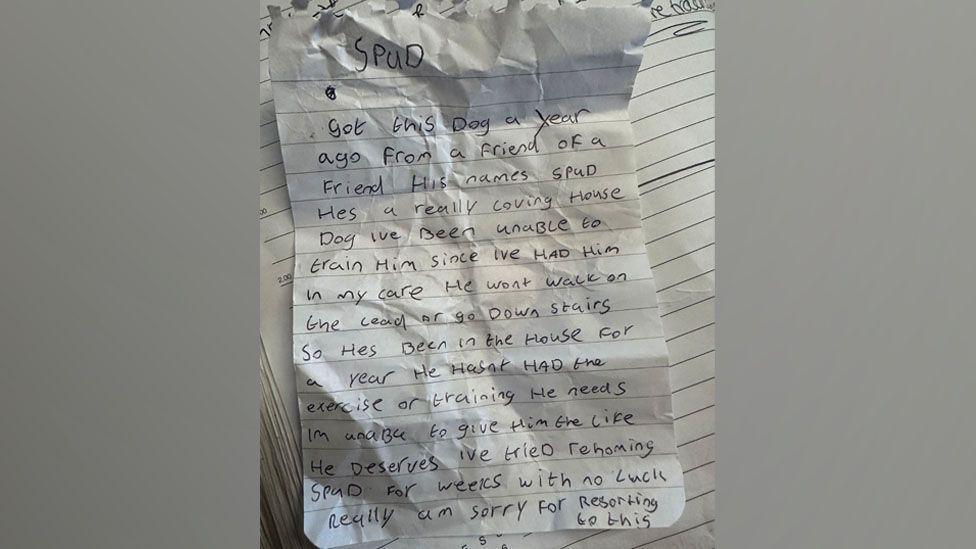 SPUD
Got this Dog a year
ago From a Friend of a
Friend His names SPUD
Hes a really Loving House
Dog ive Been unaBle to
train Him since ive HAD Him
In my care He wont walk on
the Lead or go Down stairs
So Hes Been in the House For
a year He Hasnt HAD the
exercise or training He needs
Im unaBle to give Him the Life
He Deserves ive trieD rehoming
SPUD For weeks with no Luck
Really am sorry For Resorting
to this
200